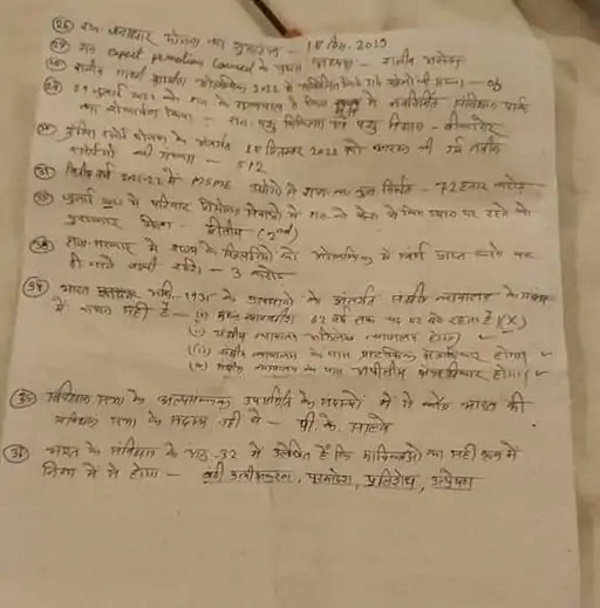 (26) राज. जनाधार योजना का शुभारम्भ - 18 दिस. 2019
(27) राज. export promotion council के प्रथम अध्यक्ष - राजीव अरोड़ा
(28) राजीव गांधी ग्रामीण ओलंपिक 2022 में सम्मिलित किये गये खेलों की संख्या - 06
(29) जुलाई को राज. के राज्यपाल ने किस में नवनिर्मित संविधान पार्क
का लोकार्पण किया - राज. पशु चिकित्सा एवं पशु विज्ञान - बीकानेर
(30) इंदिरा रसोई योजना के अंतर्गत 18 सितम्बर 2022 को प्रारम्भ की गई नवीन
रसोईयों की संख्या - 512
(31) वित्तीय वर्ष 2021-22 में MSME उद्योगों में राज. का कुल निर्यात - 72 हजार करोड़
जुलाई में परिवार नियोजन सेवाओं में राज. को देश के किस स्थान पर रहने का
पुरस्कार मिला - द्वितीय (2nd)
राज. सरकार में राज्य के खिलाड़ियों को ओलम्पिक में स्वर्ण प्राप्त करने पर
दी जाने वाली राशि - 3 करोड़
(34) भारत अधि. 1935 के प्रावधानों के अंतर्गत संघीय न्यायालय के संबंध
में सत्य नहीं है - (i) मुख्य न्यायाधीश 62 वर्ष तक पद पर बने रहता है (X)
(ii) संघीय न्यायालय अभिलेख न्यायालय होगा ✓
(iii) संघीय न्यायालय के पास प्रारंभिक क्षेत्राधिकार होगा ✓
संघीय न्यायालय के पास अपीलीय क्षेत्राधिकार होगा ✓
(35) संविधान सभा के अल्पसंख्यक उपसमिति के सदस्यों में से कौन भारत की
संविधान सभा के सदस्य नहीं थे - पी. के. साल्वे
(36) भारत के संविधान के अनु. 32 में उल्लेखित है कि याचिकाओं का सही क्रम में
निम्न में से होगा - बंदी प्रत्यक्षीकरण, परमादेश, प्रतिषेध, उत्प्रेषण